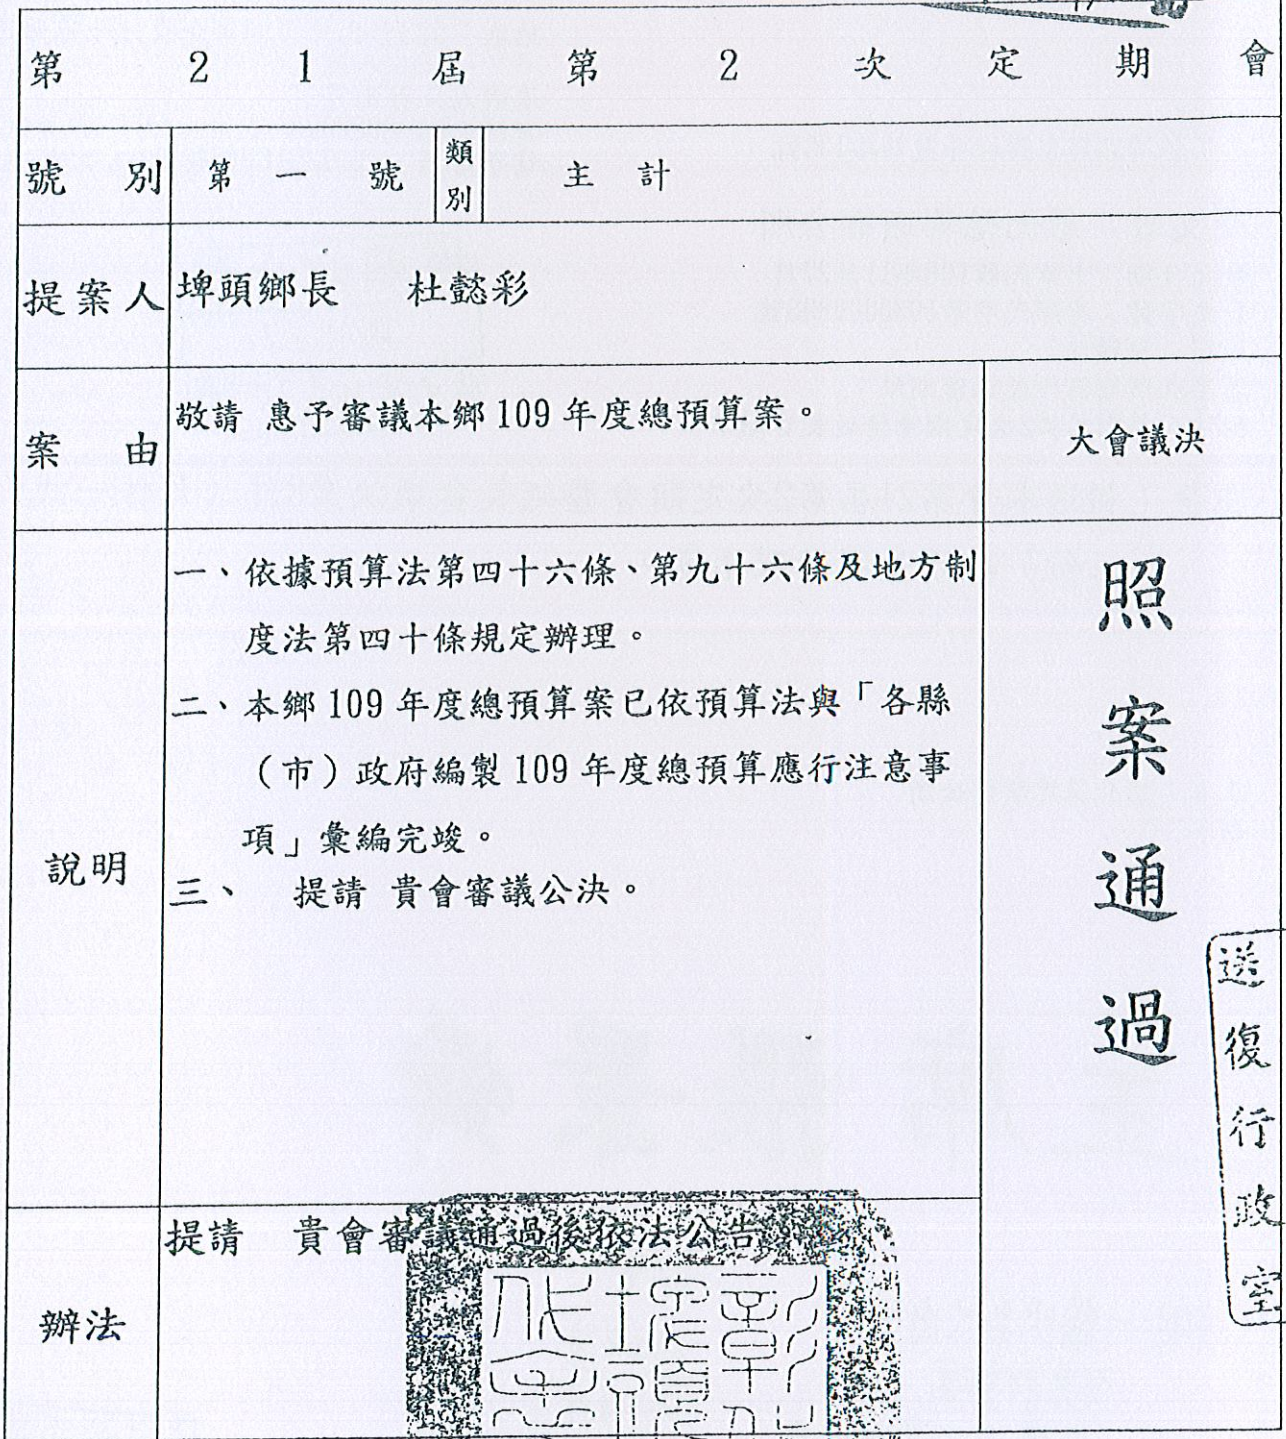 第21屆第2次定期會
號別 第一號 類別 主計
提案人 埤頭鄉長 杜懿彩
案由 敬請 惠予審議本鄉109年度總預算案。
大會議決
說明
一、依據預算法第四十六條、第九十六條及地方制
度法第四十條規定辦理。
二、本鄉109年度總預算案已依預算法與「各縣
(市)政府編製109年度總預算應行注意事
項」彙編完竣。
三、 提請 貴會審議公決。
照案通過
送復行政室
辦法
提請 貴會審議通過後依法公告